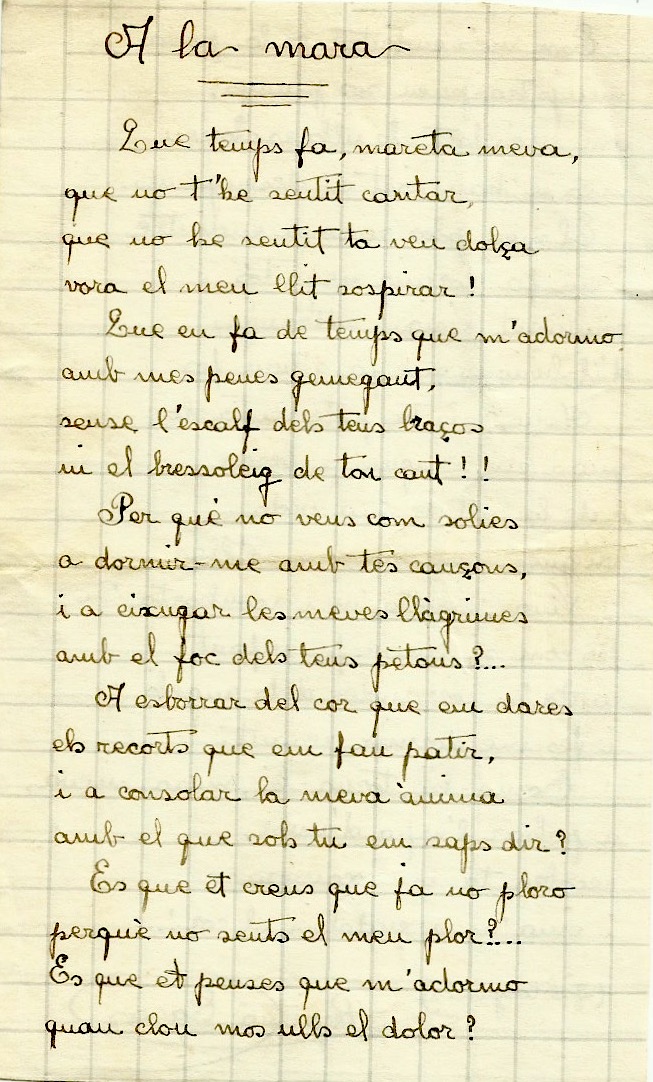 A la mara
Que temps fa, mareta meva,
que no t'he sentit cantar,
que no he sentit ta veu dolça
vora el meu llit sospirar!
Que en fa de temps que m'adormo
amb mes penes gemegant,
sense l'escalf dels teus braços
ni el bressoleig de ton cant!!
Per què no vens com solies
a dormir-me amb tes cançons,
i a eixugar les meves llàgrimes
amb el foc dels teus petons?...
A esborrar del cor que em dares
els recorts que em fan patir,
i a consolar la meva ànima
amb el que sols tu em saps dir?
Es que et creus que ja no ploro
perquè no sents el meu plor?...
Es que et penses que m'adormo
quan clou mos ulls el dolor?